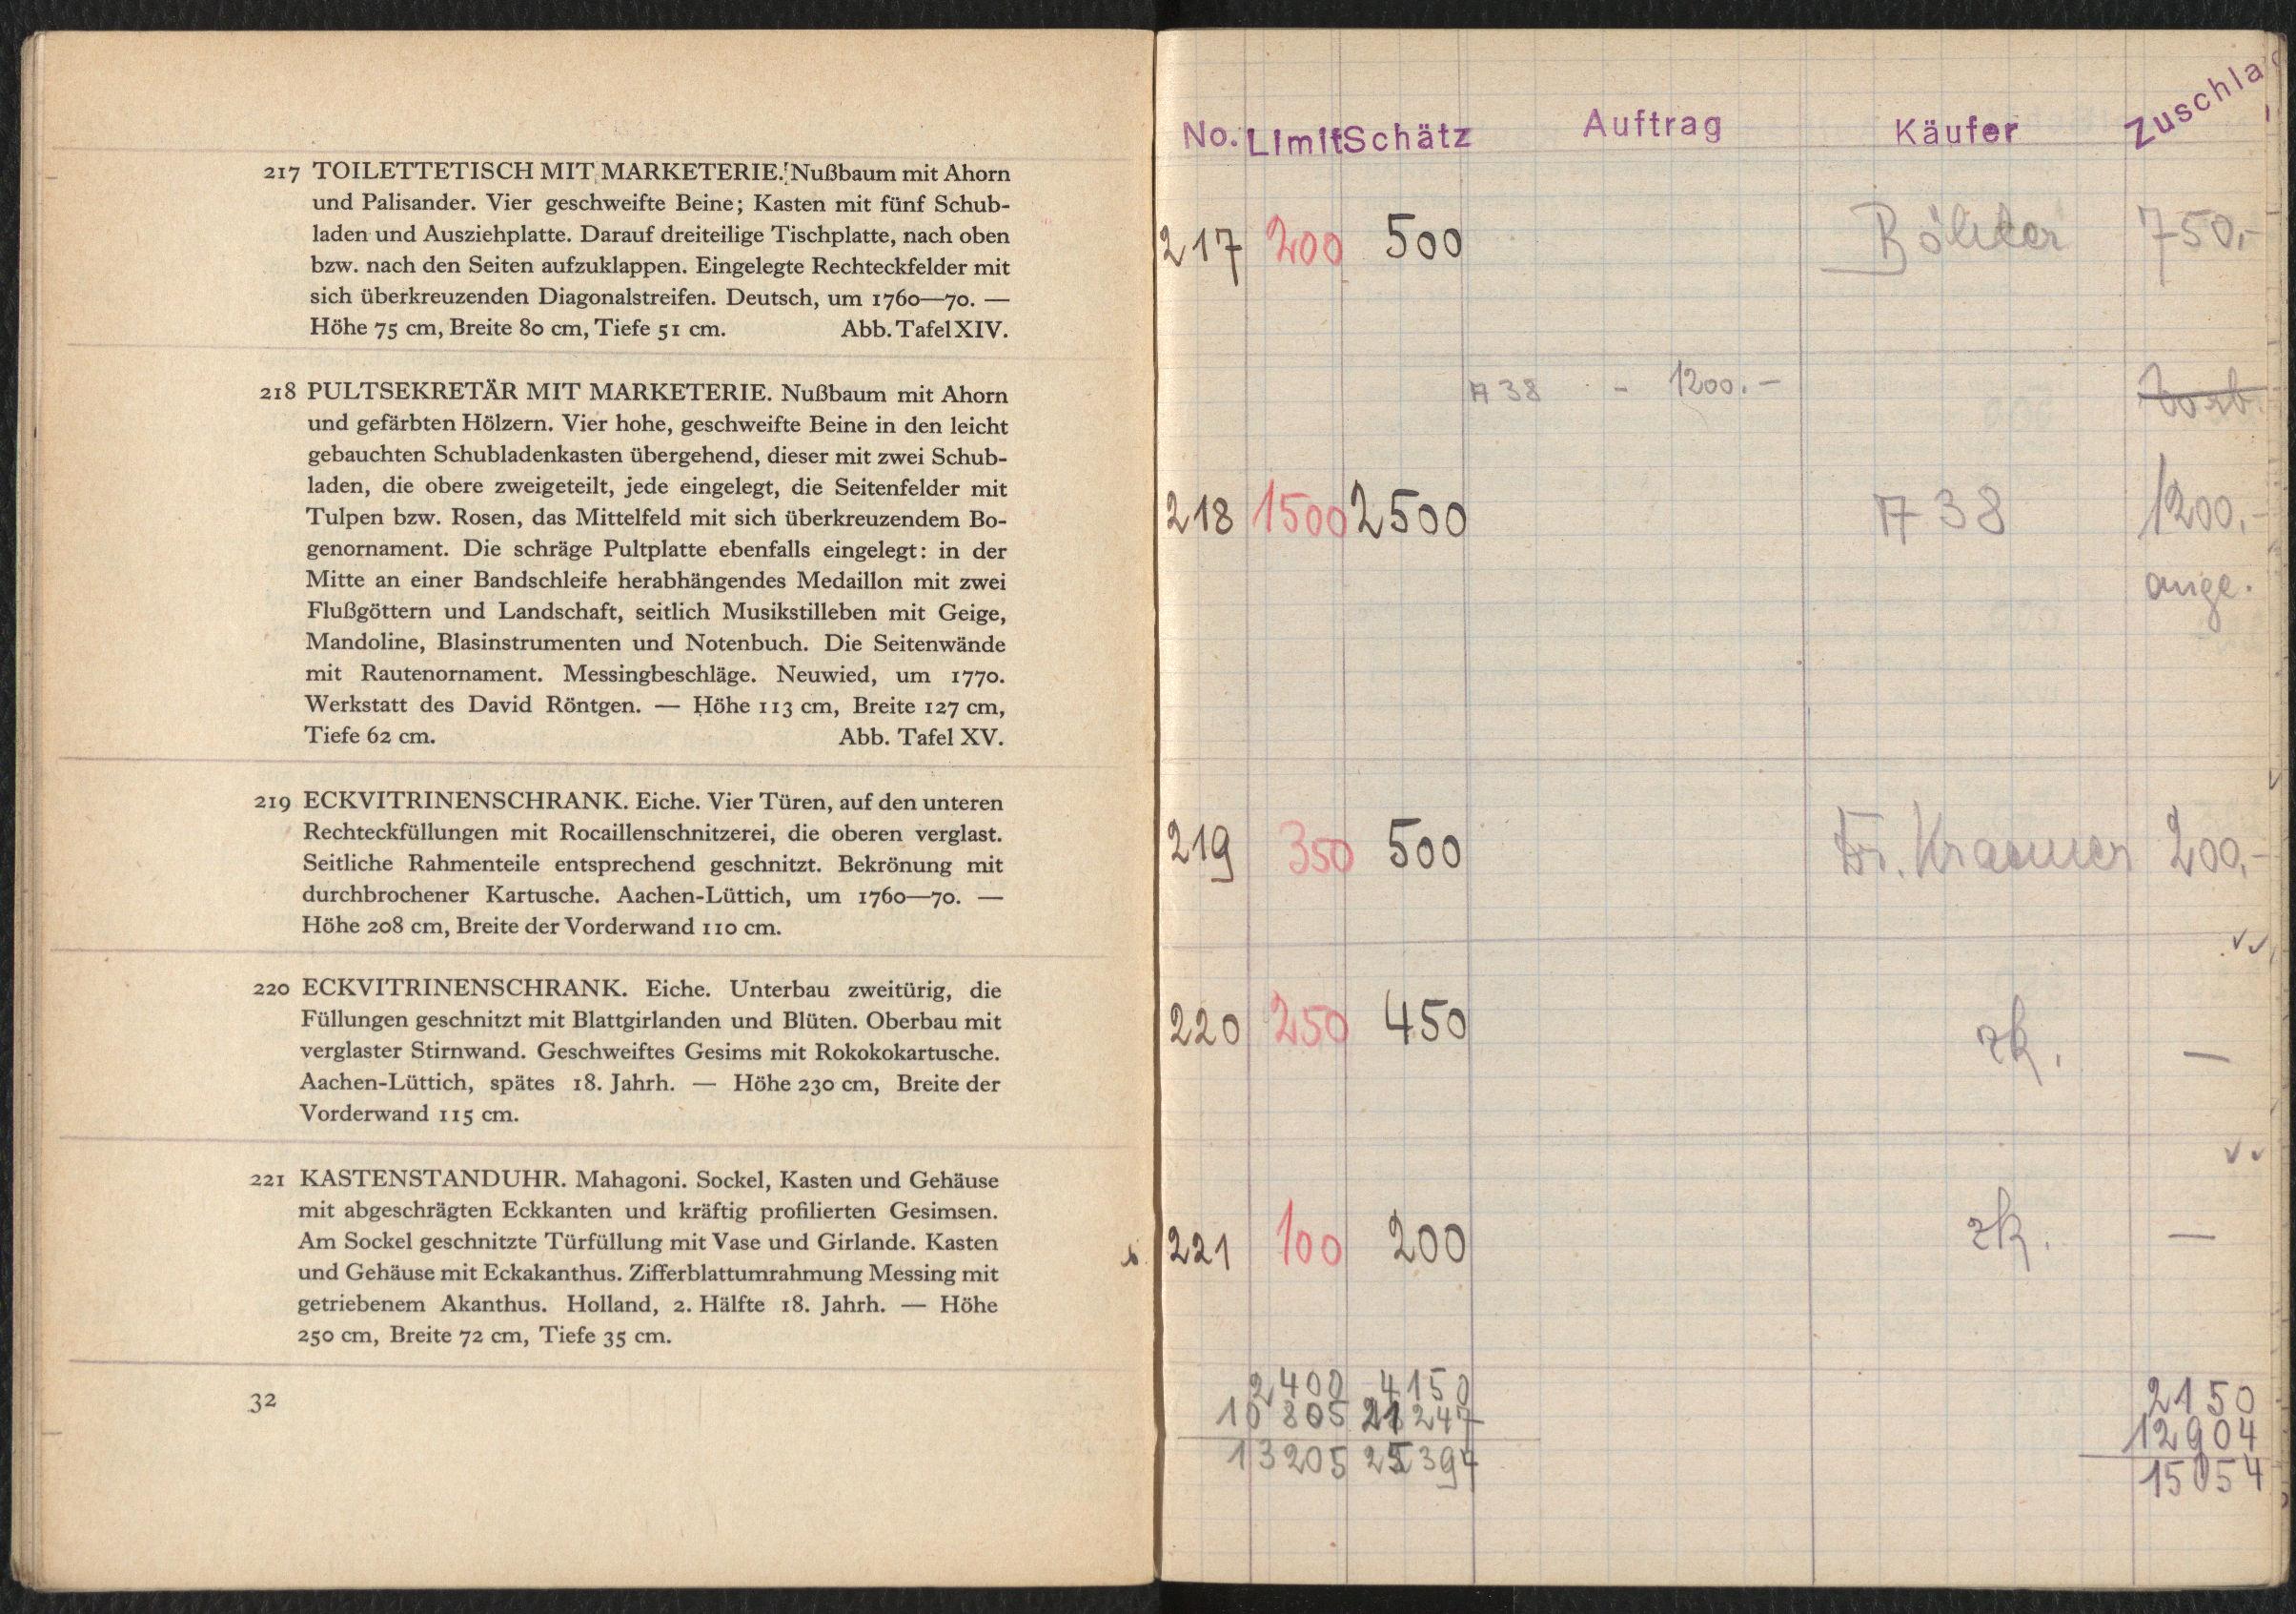 217 TOILETTETISCH MIT MARKETERIE. Nußbaum mit Ahorn
und Palisander. Vier geschweifte Beine; Kasten mit fünf Schub-
laden und Ausziehplatte. Darauf dreiteilige Tischplatte, nach oben
bzw. nach den Seiten aufzuklappen. Eingelegte Rechteckfelder mit
sich überkreuzenden Diagonalstreifen. Deutsch, um 1760—70. —
Höhe 75 cm, Breite 80 cm, Tiefe 51 cm. Abb. Tafel XIV.
218 PULTSEKRETÄR MIT MARKETERIE. Nußbaum mit Ahorn
und gefärbten Hölzern. Vier hohe, geschweifte Beine in den leicht
gebauchten Schubladenkasten übergehend, dieser mit zwei Schub-
laden, die obere zweigeteilt, jede eingelegt, die Seitenfelder mit
Tulpen bzw. Rosen, das Mittelfeld mit sich überkreuzendem Bo-
genornament. Die schräge Pultplatte ebenfalls eingelegt: in der
Mitte an einer Bandschleife herabhängendes Medaillon mit zwei
Flußgöttern und Landschaft, seitlich Musikstilleben mit Geige,
Mandoline, Blasinstrumenten und Notenbuch. Die Seitenwände
mit Rautenornament. Messingbeschläge. Neuwied, um 1770.
Werkstatt des David Röntgen. — Höhe 113 cm, Breite 127 cm,
Tiefe 62 cm. Abb. Tafel XV.
219 ECKVITRINENSCHRANK. Eiche. Vier Türen, auf den unteren
Rechteckfüllungen mit Rocaillenschnitzerei, die oberen verglast.
Seitliche Rahmenteile entsprechend geschnitzt. Bekrönung mit
durchbrochener Kartusche. Aachen-Lüttich, um 1760—70. —
Höhe 208 cm, Breite der Vorderwand 110 cm.
220 ECKVITRINENSCHRANK. Eiche. Unterbau zweitürig, die
Füllungen geschnitzt mit Blattgirlanden und Blüten. Oberbau mit
verglaster Stirnwand. Geschweiftes Gesims mit Rokokokartusche.
Aachen-Lüttich, spätes 18. Jahrh. — Höhe 230 cm, Breite der
Vorderwand 115 cm.
221 KASTENSTANDUHR. Mahagoni. Sockel, Kasten und Gehäuse
mit abgeschrägten Eckkanten und kräftig profilierten Gesimsen.
Am Sockel geschnitzte Türfüllung mit Vase und Girlande. Kasten
und Gehäuse mit Eckakanthus. Zifferblattumrahmung Messing mit
getriebenem Akanthus. Holland, 2. Hälfte 18. Jahrh. — Höhe
250 cm, Breite 72 cm, Tiefe 35 cm.
32
No. Limit Schätz Auftrag Käufer Zuschlag
217 200 500 750,-
38 - 1200.-
218 1500 2500 38 1200,-
219 350 500 Dr. Kraemer 200,-
220 250 450 zk. —
221 100 200 zk. —
2400 4150 2150
10805 21247 12904
13205 25397 15054